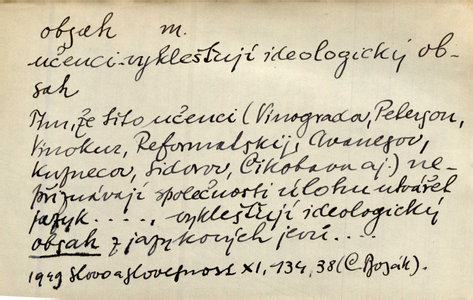 obsah m.
učenci vyklešťují ideologický ob-
sah
že tito učenci (Vinogradov, Peterson,
Vinokur, Reformatskij, Avanesov,
Kuznecov, Sidorov, Čikobava aj.) ne-
přiznávají společnosti úlohu utvářet
jazyk . . . . , vyklešťují ideologický
obsah z jazykových jevů . . . .
1949 Slovo a slovesnost XI, 134, 38 (C. Bosák).